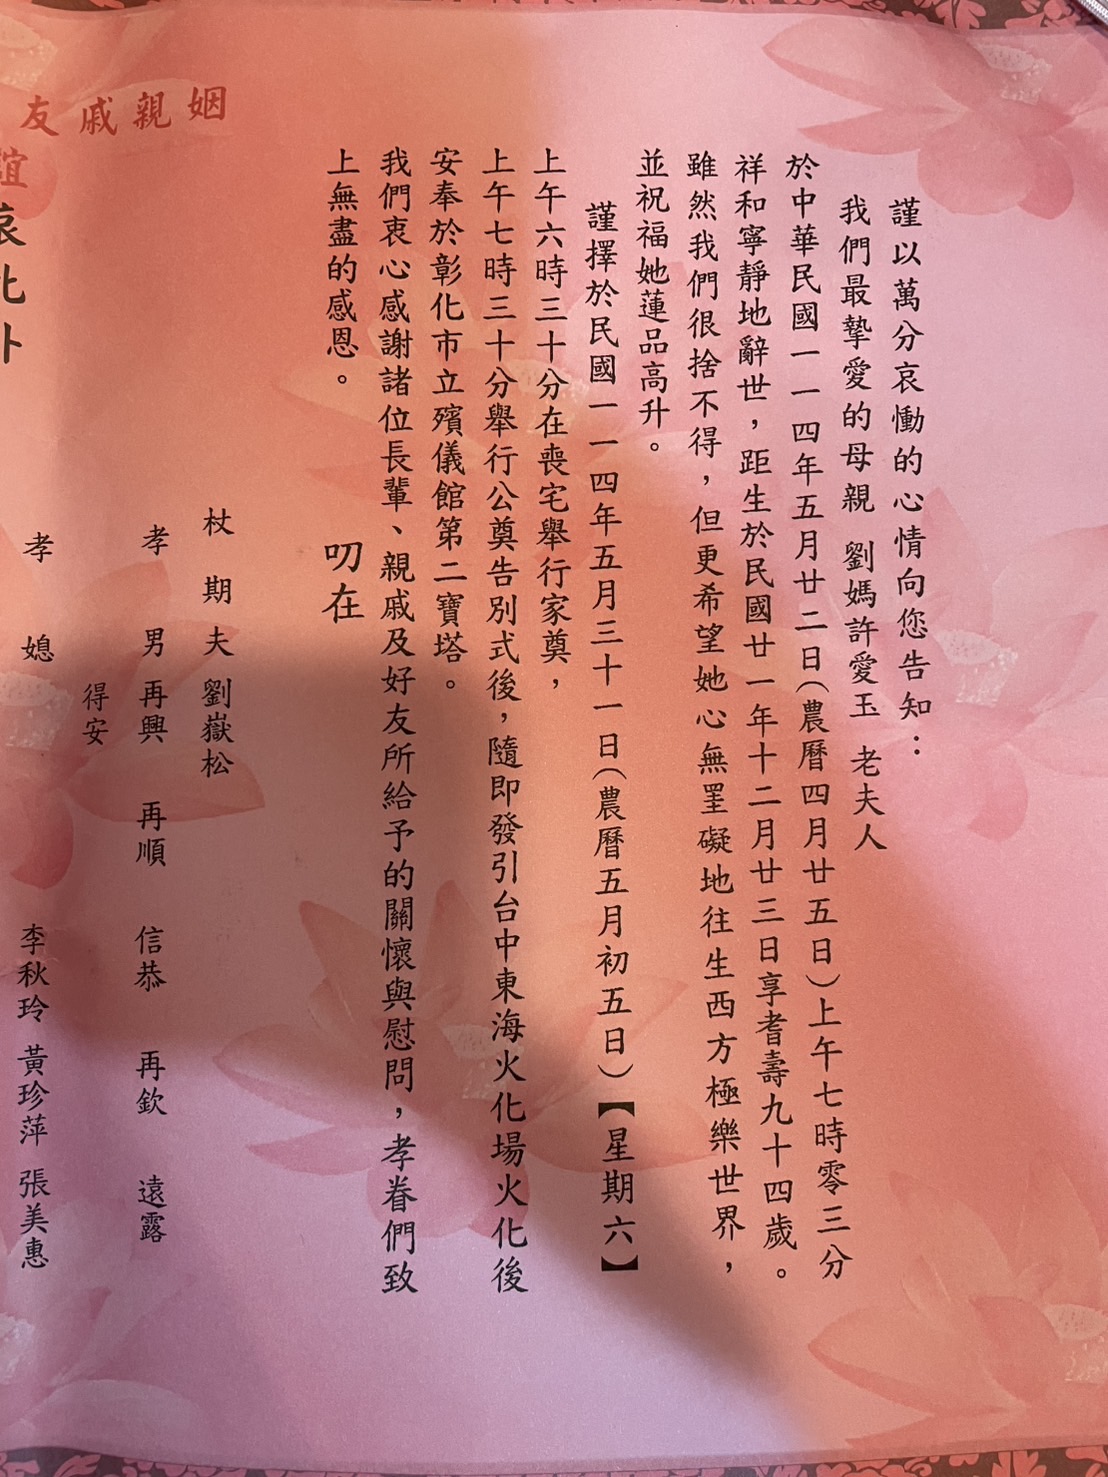 謹以萬分哀慟的心情向您告知：
我們最摯愛的母親 劉媽許愛玉 老夫人
於中華民國一一四年五月廿二日(農曆四月廿五日)上午七時零三分
祥和寧靜地辭世，距生於民國廿一年十二月廿三日享耆壽九十四歲。
雖然我們很捨不得，但更希望她心無罣礙地往生西方極樂世界，
並祝福她蓮品高升。
謹擇於民國一一四年五月三十一日(農曆五月初五日)【星期六】
上午六時三十分在喪宅舉行家奠，
上午七時三十分舉行公奠告別式後，隨即發引台中東海火化場火化後
安奉於彰化市立殯儀館第二寶塔。
我們衷心感謝諸位長輩、親戚及好友所給予的關懷與慰問，孝眷們致
上無盡的感恩。
叨在
姻親戚友
誼
哀此訃
杖期夫 劉嶽松
孝男 再興 再順 信恭 再欽 遠露
得安
孝媳 李秋玲 黃珍萍 張美惠